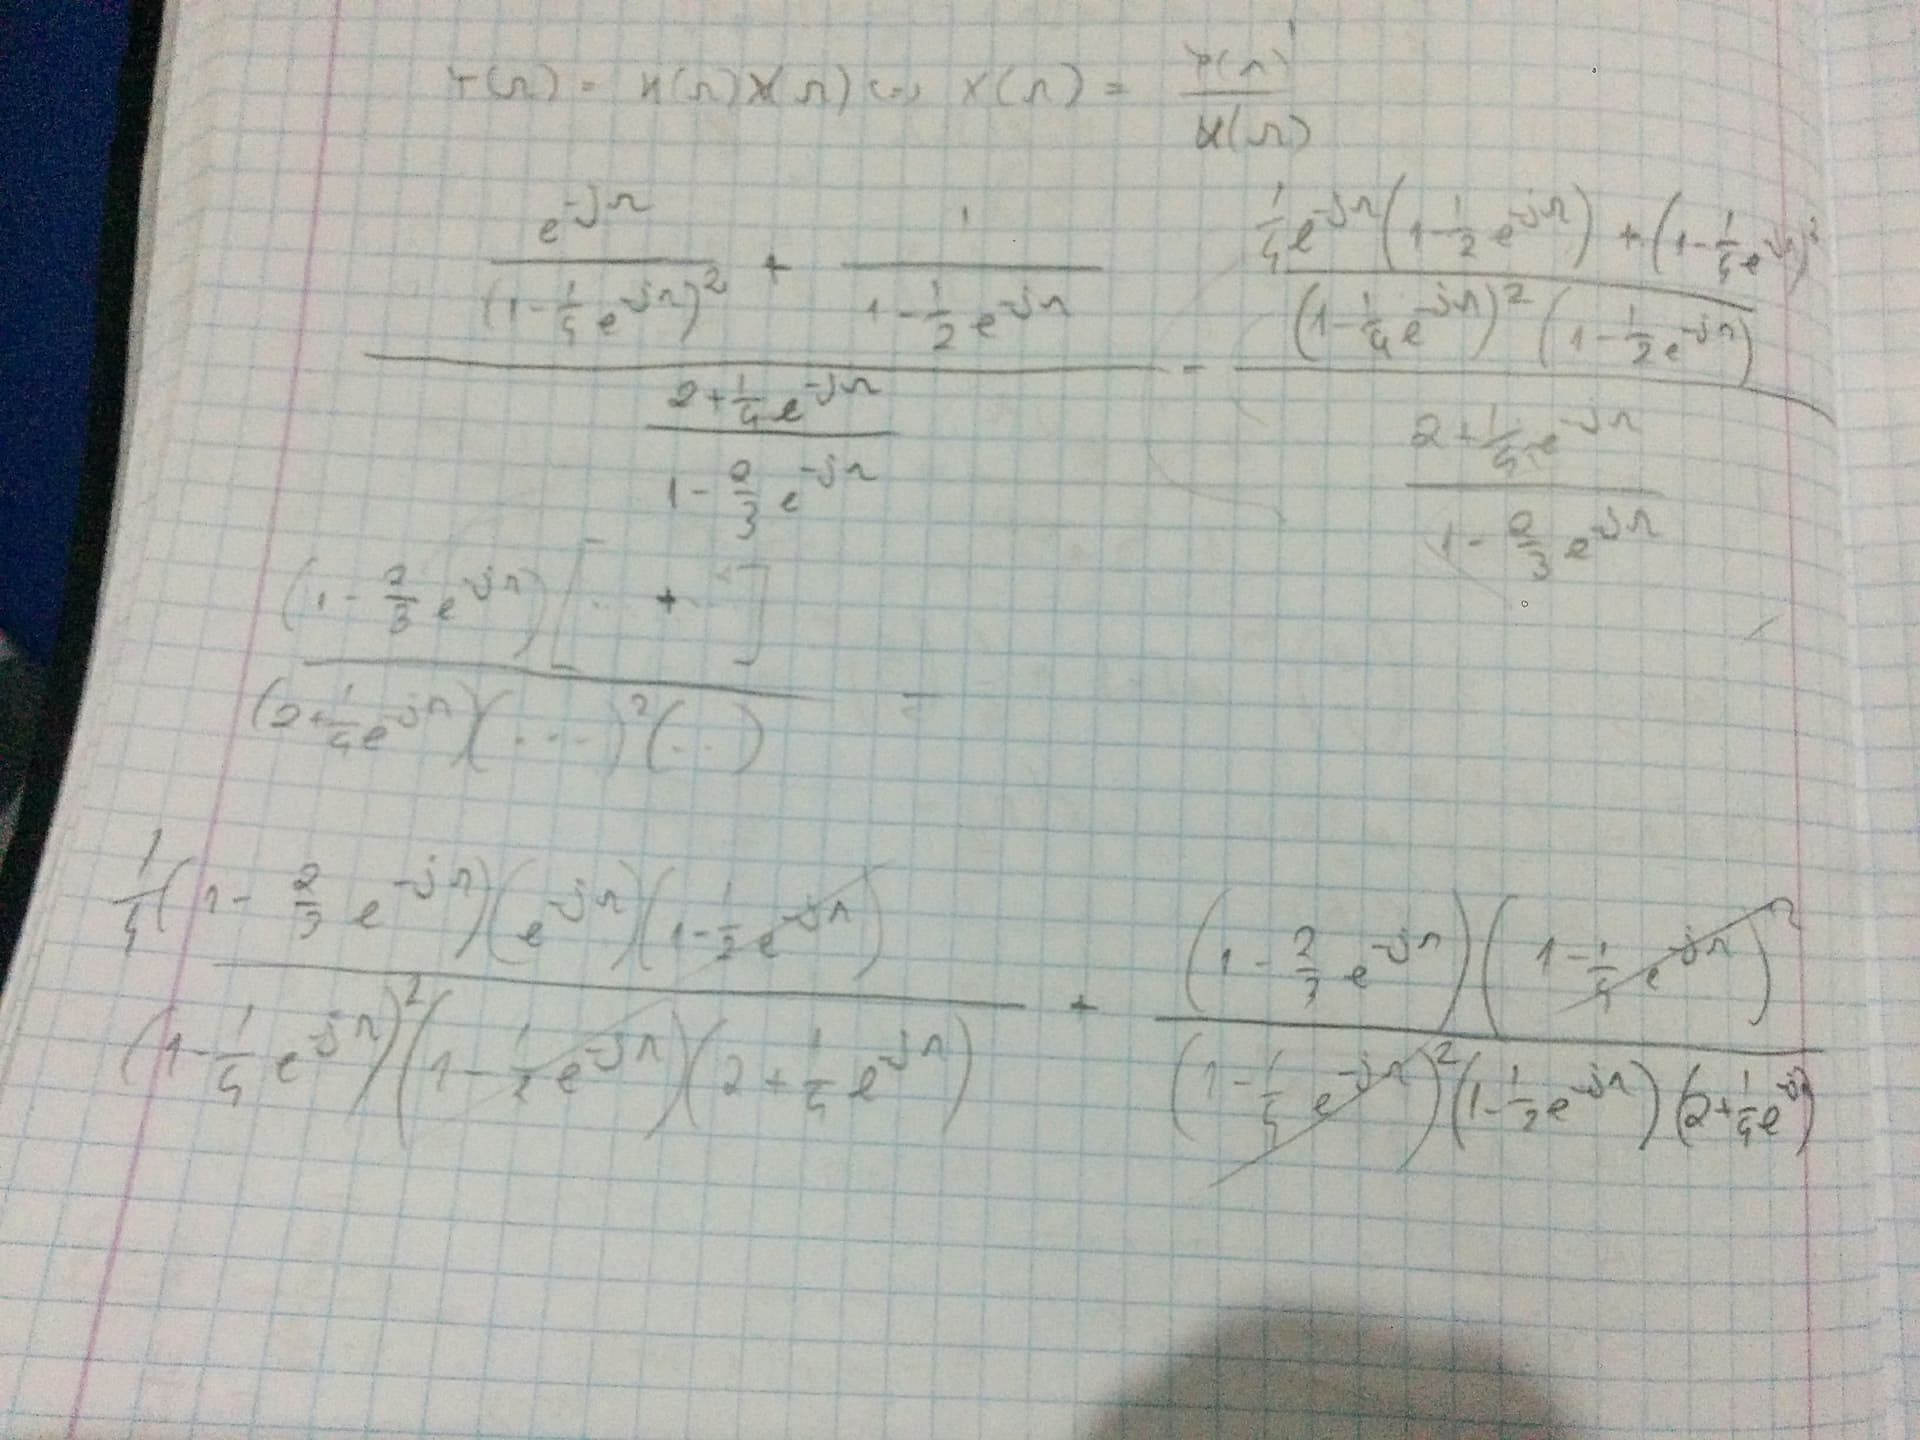 Y(Ω) = H(Ω)X(Ω) <=> X(Ω) = Y(Ω) / H(Ω)
(e^{-jΩ} / (1 - 1/4 e^{-jΩ})^2 + 1 / (1 - 1/2 e^{-jΩ})) / ((2 + 1/4 e^{-jΩ}) / (1 - 2/3 e^{-jΩ})) = ((1/4 e^{-jΩ} (1 - 1/2 e^{-jΩ}) + (1 - 1/4 e^{-jΩ})^2) / ((1 - 1/4 e^{-jΩ})^2 (1 - 1/2 e^{-jΩ}))) / ((2 + 1/4 e^{-jΩ}) / (1 - 2/3 e^{-jΩ}))
(1 - 2/3 e^{-jΩ}) [.. + ..] / (2 + 1/4 e^{-jΩ})(...)^2(..) =
1/4 (1 - 2/3 e^{-jΩ})(e^{-jΩ})(1 - 1/2 e^{-jΩ}) / (1 - 1/4 e^{-jΩ})^2 (1 - 1/2 e^{-jΩ})(2 + 1/4 e^{-jΩ}) + (1 - 2/3 e^{-jΩ})(1 - 1/4 e^{-jΩ})^2 / (1 - 1/4 e^{-jΩ})^2 (1 - 1/2 e^{-jΩ})(2 + 1/4 e^{-jΩ})